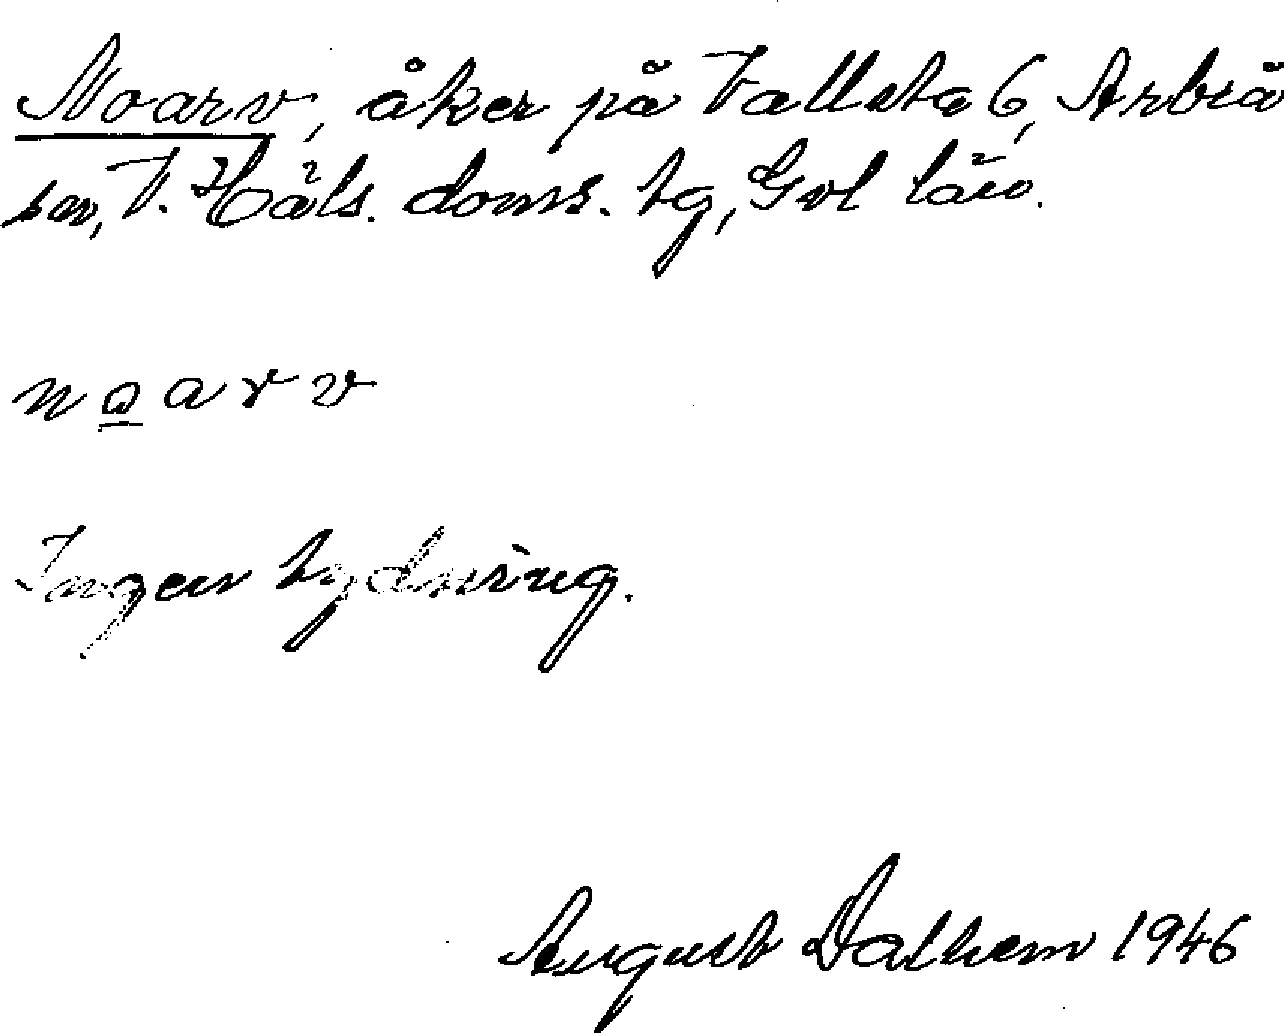 Noarv, åker på Vallsta 6, Arbrå
sn, V. Häls. doms. tg, Gvl län.
n o a r v
Ingen tydning.
August Dalhem 1946